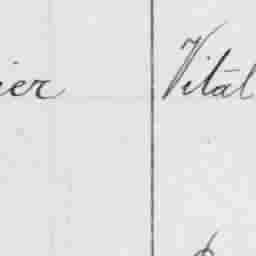 ier Vital